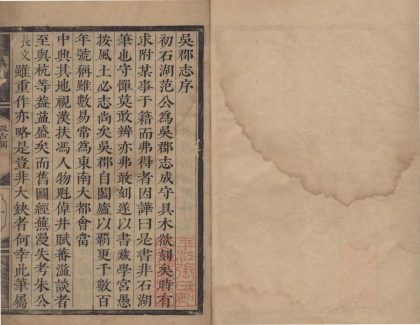 吳郡志序
初石湖范公為吳郡志成守具木欲刻矣時有
求附某事于籍而弗得者因譁曰是書非石湖
筆也守憚莫敢辨亦弗敢刻遂以書藏學宮愚
按風土必志尚矣吳郡自闔廬以霸更千數百
年號稱雖數易常為東南大都會當
中興其地視漢扶馮人物魁倬井賦蕃溢談者
至與杭等蓋益盛矣而舊圖經蕪漫失考朱公
長文雖重作亦略是豈非大缺者何幸此筆屬
汲古閣